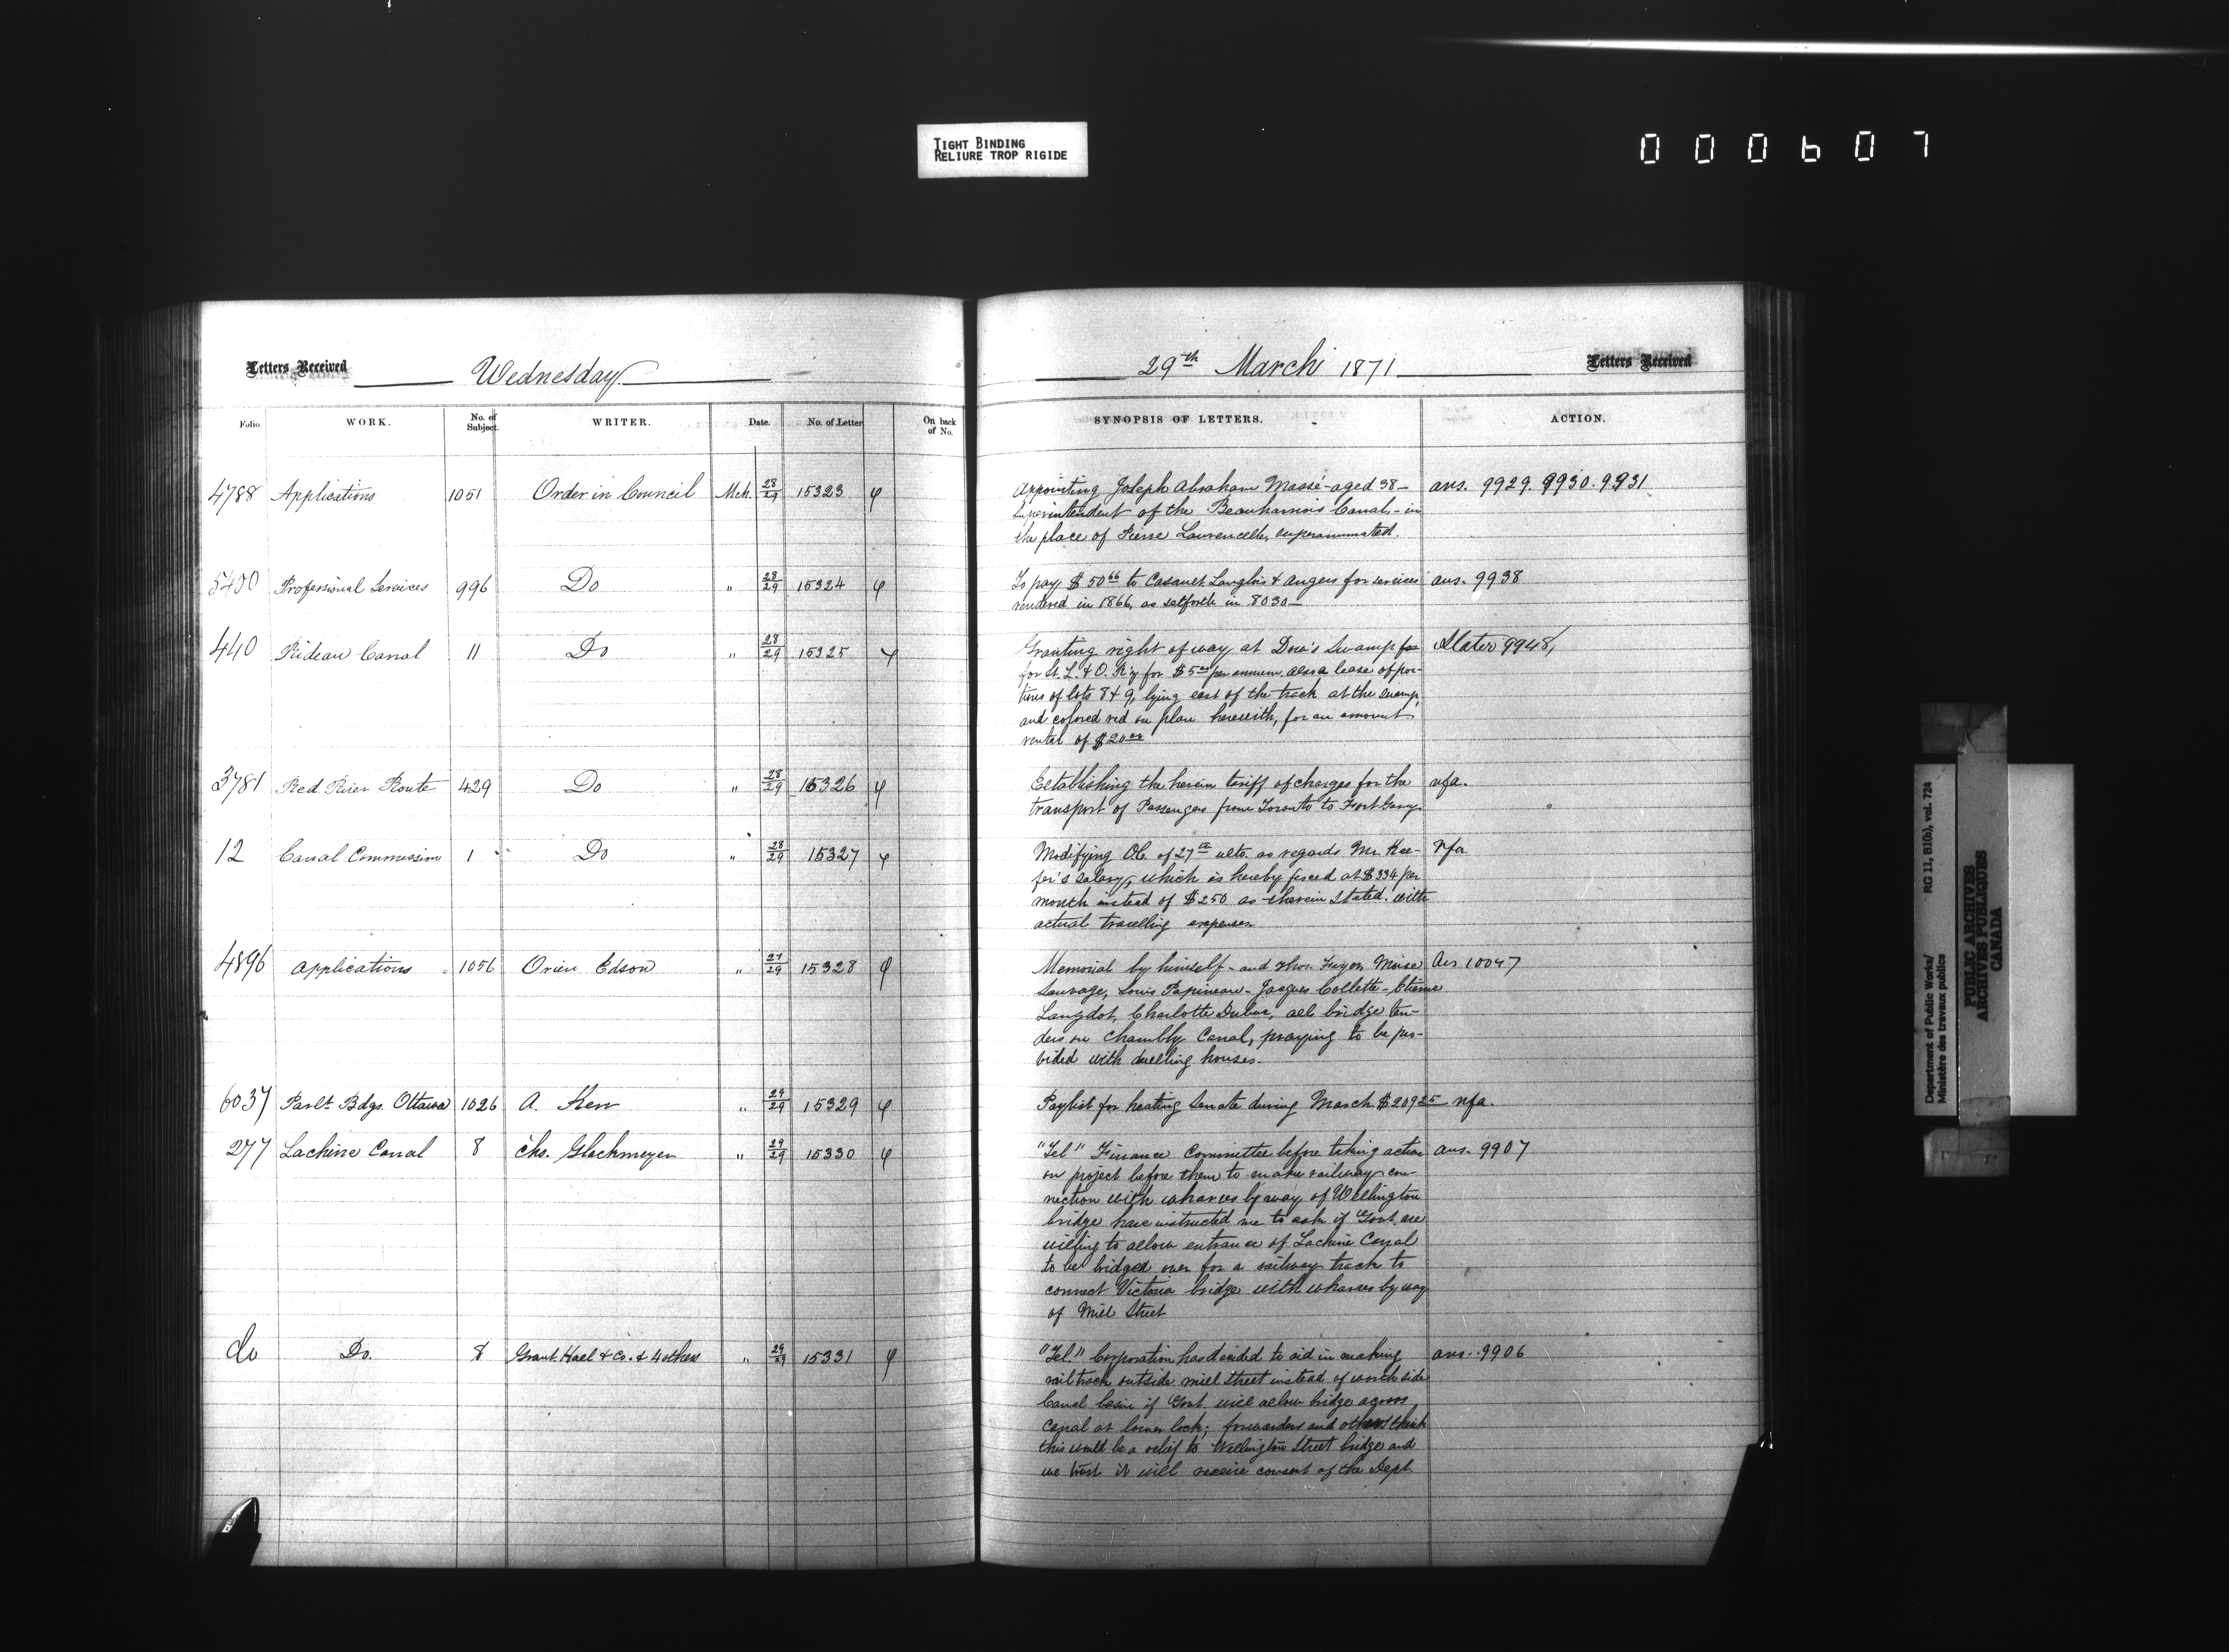 TIGHT BINDING
RELIURE TROP RIGIDE
000607
Letters Received Wednesday 29th March 1871 Letters Received
Folio. WORK. No. of Subject. WRITER. Date. No. of Letter On back of No. SYNOPSIS OF LETTERS. ACTION.
4788 Applications 1051 Order in Council Mch. 28/29 15323 Appointing Joseph Abraham Massé - aged 38 - ans. 9929. 9930. 9931
Superintendent of the Beauharnois Canal, - in
the place of Pierre superannuated.
5400 Professional Services 996 Do " 28/29 15324 To pay $50 66 to Casault Langlois & Angers for services ans. 9938
rendered in 1866, as setforth in 8030 -
440 Rideau Canal 11 Do " 28/29 15325 Granting right of way at Dow's Swamp for Slater 9948,
for St. L. & O. R'y for $5 00 per annum. also a lease of por-
tions of lots 8 & 9, lying east of the track at the swamp,
and colored red on plan herewith, for an amount
rental of $20 00
3781 Red River Route 429 Do " 28/29 15326 Establishing the herein tariff of charges for the nfa.
transport of Passengers from Toronto to Fort Garry.
12 Canal Commission 1 Do " 28/29 15327 Modifying OC. of 27th ulto. as regards Mr. Kee- nfa
fer's salary, which is hereby fixed at $334 per
month instead of $250 as therein stated. with
actual travelling expenses
4896 Applications 1056 Orien Edson " 27/29 15328 Memorial by himself - and Thos. Moise Ans 10047
Sauvage, Louis Papineau - Jacques Collette - Etienne
Langdot, Charlotte all bridge ten-
ders on Chambly Canal, praying to be pro-
vided with dwelling houses.
6037 Parlt. Bdgs. Ottawa 1026 A. Kerr " 29/29 15329 Paylist for heating Senate during March $209 25 nfa.
277 Lachine Canal 8 Chs. Glackmeyer " 29/29 15330 "Tel" Finance Committee before taking action ans. 9907
on project before them to make railway con-
nection with wharves by way of Wellington
bridge have instructed me to ask if Govt. are
willing to allow entrance of Lachine Canal
to be bridged over for a railway track to
connect Victoria bridge with wharves by way
of Mill Street
do Do. 8 Grant Hall & Co. & 4 others " 29/29 15331 "Tel." Corporation has decided to aid in making ans. 9906
rail track outside mill street instead of north side
Canal basin if Govt. will allow bridge across
Canal at lower lock; forwarders and others think
this would be a relief to Wellington Street bridge and
we trust it will receive consent of the Dept
Department of Public Works/
Ministère des travaux publics
RG 11, B1(b), vol. 724
PUBLIC ARCHIVES
ARCHIVES PUBLIQUES
CANADA